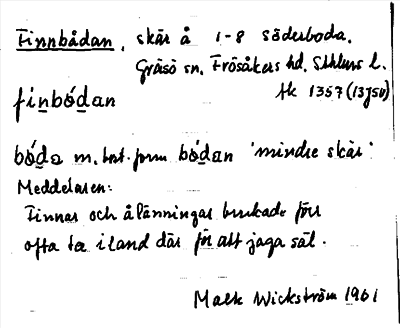 Finnbådan, skär å 1-8 Söderboda.
Gräsö sn, Frösåkers hd, Sthlms l.
fin̲bó̲d̲an ek 1357 (13J5v)
bó̲d̲a m. best. form bó̲d̲an 'mindre skär'
Meddelaren:
Finnar och ålänningar brukade förr
ofta ta i land där för att jaga säl.
Maek Wickström 1961